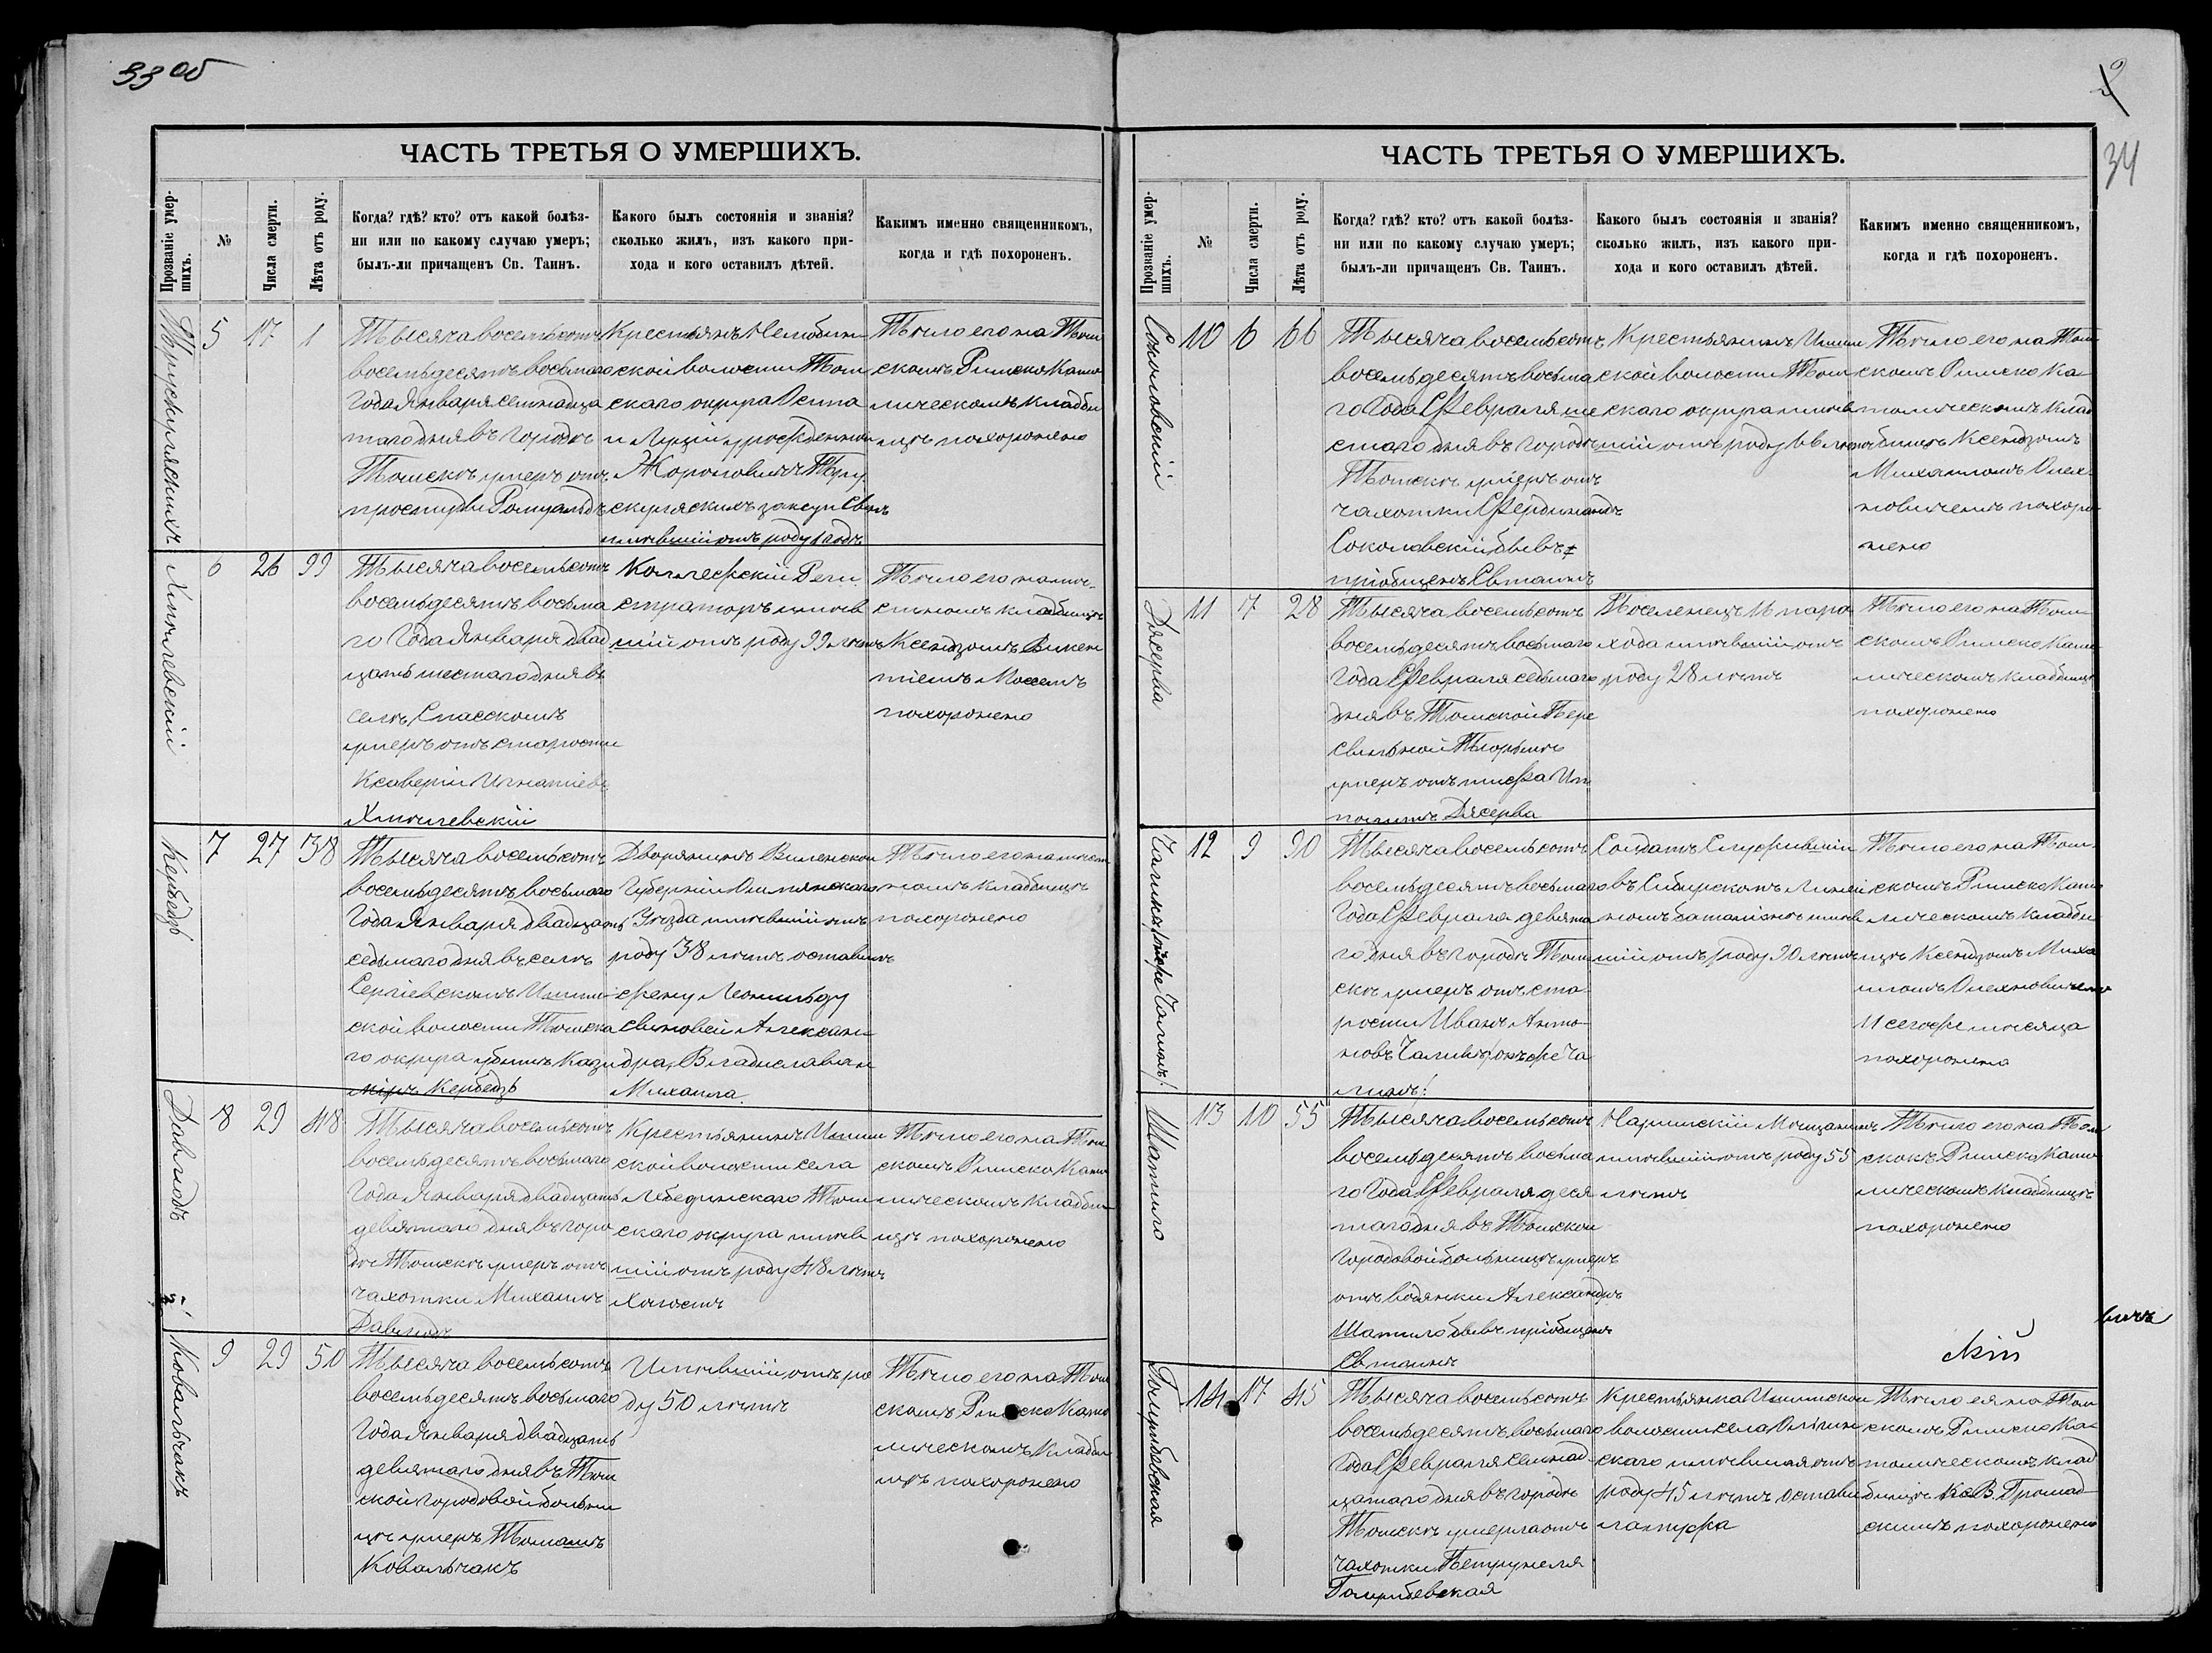 33 об
ЧАСТЬ ТРЕТЬЯ О УМЕРШИХЪ.
Прозваніе умер-
шихъ.
№
Числа смерти.
Лѣта отъ роду.
Когда? гдѣ? кто? отъ какой болѣз-
ни или по какому случаю умеръ;
былъ-ли причащенъ Св. Таинъ.
Какого былъ состоянія и званія?
сколько жилъ, изъ какого при-
хода и кого оставилъ дѣтей.
Какимъ именно священникомъ,
когда и гдѣ похороненъ.
5
17
1
Тысяча восемьсотъ
восемьдесятъ восьмаго
Года Января семнадца
таго дня въ городѣ
Томскѣ умеръ отъ
простуды Ромуальдъ
Крестьянъ Нелюбин
ской волости Том
скаго округа Осипа
и Луціи урожденной
законн Сынъ
имѣвшій отъ роду 1 годъ
Тѣло его на Том
скомъ Римско Като
лическомъ кладби
щѣ похоронено
Хмѣлевскій
6
26
99
Тысяча восемьсотъ
восемьдесятъ восьма
го Года Января двад
цать шестаго дня въ
селѣ Спасскомъ
умеръ отъ старости
Ксаверій Игнатіевъ
Хмѣлевскій
Коллежскій Реги
страторъ имѣв
шій отъ роду 99 лѣтъ
Тѣло его на мѣ-
стномъ кладбищѣ
Ксендзомъ Викен
тіемъ
похоронено
Кербедзь
7
27
38
Тысяча восемьсотъ
восемьдесятъ восьмаго
Года Января двадцать
седьмаго дня въ селѣ
Сергіевскомъ Ишим-
ской волости Томска
го округа убитъ Кази
міръ Кербедзь
Дворянинъ Виленской
Губерніи Ошмянскаго
Уѣзда имѣвшій отъ
роду 38 лѣтъ оставилъ
жену Леонильду
сыновей Алексан
дра, Владислава и
Михаила.
Тѣло его на мѣст
номъ кладбищѣ
похоронено
Давгюдъ
8
29
48
Тысяча восемьсотъ
восемьдесятъ восьмаго
Года Января двадцать
девятаго дня въ горо
дѣ Томскѣ умеръ отъ
чахотки Михаилъ
Крестьянинъ Ишим
ской волости села
Лебединскаго Том
скаго округа имѣв
шій отъ роду 48 лѣтъ
Холостъ
Тѣло его на Том
скомъ Римско Като
лическомъ кладби
щѣ похоронено
Ковальчакъ
9
29
50
Тысяча восемьсотъ
восемьдесятъ восьмаго
Года Января двадцать
девятаго дня въ Том
ской городовой больни
цѣ умеръ Томашъ
Ковальчакъ
Имѣвшій отъ ро
ду 50 лѣтъ
Тѣло его на Том
скомъ Римско Като
лическомъ кладби
щѣ похоронено
34
ЧАСТЬ ТРЕТЬЯ О УМЕРШИХЪ.
Прозваніе умер-
шихъ.
№
Числа смерти.
Лѣта отъ роду.
Когда? гдѣ? кто? отъ какой болѣз-
ни или по какому случаю умеръ;
былъ-ли причащенъ Св. Таинъ.
Какого былъ состоянія и званія?
сколько жилъ, изъ какого при-
хода и кого оставилъ дѣтей.
Какимъ именно священникомъ,
когда и гдѣ похороненъ.
Соколовскій
10
6
66
Тысяча восемьсотъ
восемьдесятъ восьма
го Года Февраля ше
стаго дня въ городѣ
Томскѣ умеръ отъ
чахотки Фердинандъ
Соколовскій бывъ
пріобщенъ Св таинъ
Крестьянинъ Ишим
ской волости Том
скаго округа имѣв
шій отъ роду 66 лѣтъ
Тѣло его на Том
скомъ Римско Ка-
толическомъ клад
бищѣ Ксендзомъ
Михаиломъ Олех
новичемъ похоро
нено
Дясерва
11
7
28
Тысяча восемьсотъ
восемьдесятъ восьмаго
Года Февраля седьмаго
дня въ Томской Пере
сыльной Тюрьмѣ
умеръ отъ тифа Ип
политъ Дясерва
Поселенецъ
имѣвшій отъ
роду 28 лѣтъ
Тѣло его на Том
скомъ Римско Като
лическомъ кладбищѣ
похоронено
12
9
90
Тысяча восемьсотъ
восемьдесятъ восьмаго
Года Февраля девята
го дня въ городѣ Том
скѣ умеръ отъ ста-
рости Иванъ Анто-
новъ
Солдатъ Служившій
въ Сибирскомъ Линей
номъ баталіонѣ имѣв
шій отъ роду 90 лѣтъ
Тѣло его на Том
скомъ Римско Като
лическомъ кладби
щѣ Ксендзомъ Миха
иломъ Олехновичемъ
11 сего же мѣсяца
похоронено
Шатило
13
10
55
Тысяча восемьсотъ
восемьдесятъ восьма
го Года Февраля деся
таго дня въ Томской
городовой больницѣ умеръ
отъ водянки Александръ
Шатило бывъ пріобщенъ
Св таинъ
Нарымскій Мѣщанинъ
имѣвшій отъ роду 55
лѣтъ
Тѣло его на Том
скомъ Римско Като
лическомъ кладбищѣ
похоронено
14
17
45
Тысяча восемьсотъ
восемьдесятъ восьмаго
Года Февраля семнад
цатаго дня въ городѣ
Томскѣ умерла отъ
чахотки Петрунеля
Крестьянка Ишимской
волости села
скаго имѣвшая отъ
роду 45 лѣтъ остави
ла мужа
Тѣло ея на Том
скомъ Римско Ка-
толическомъ клад
бищѣ Кс. В. Громад
скимъ похоронено